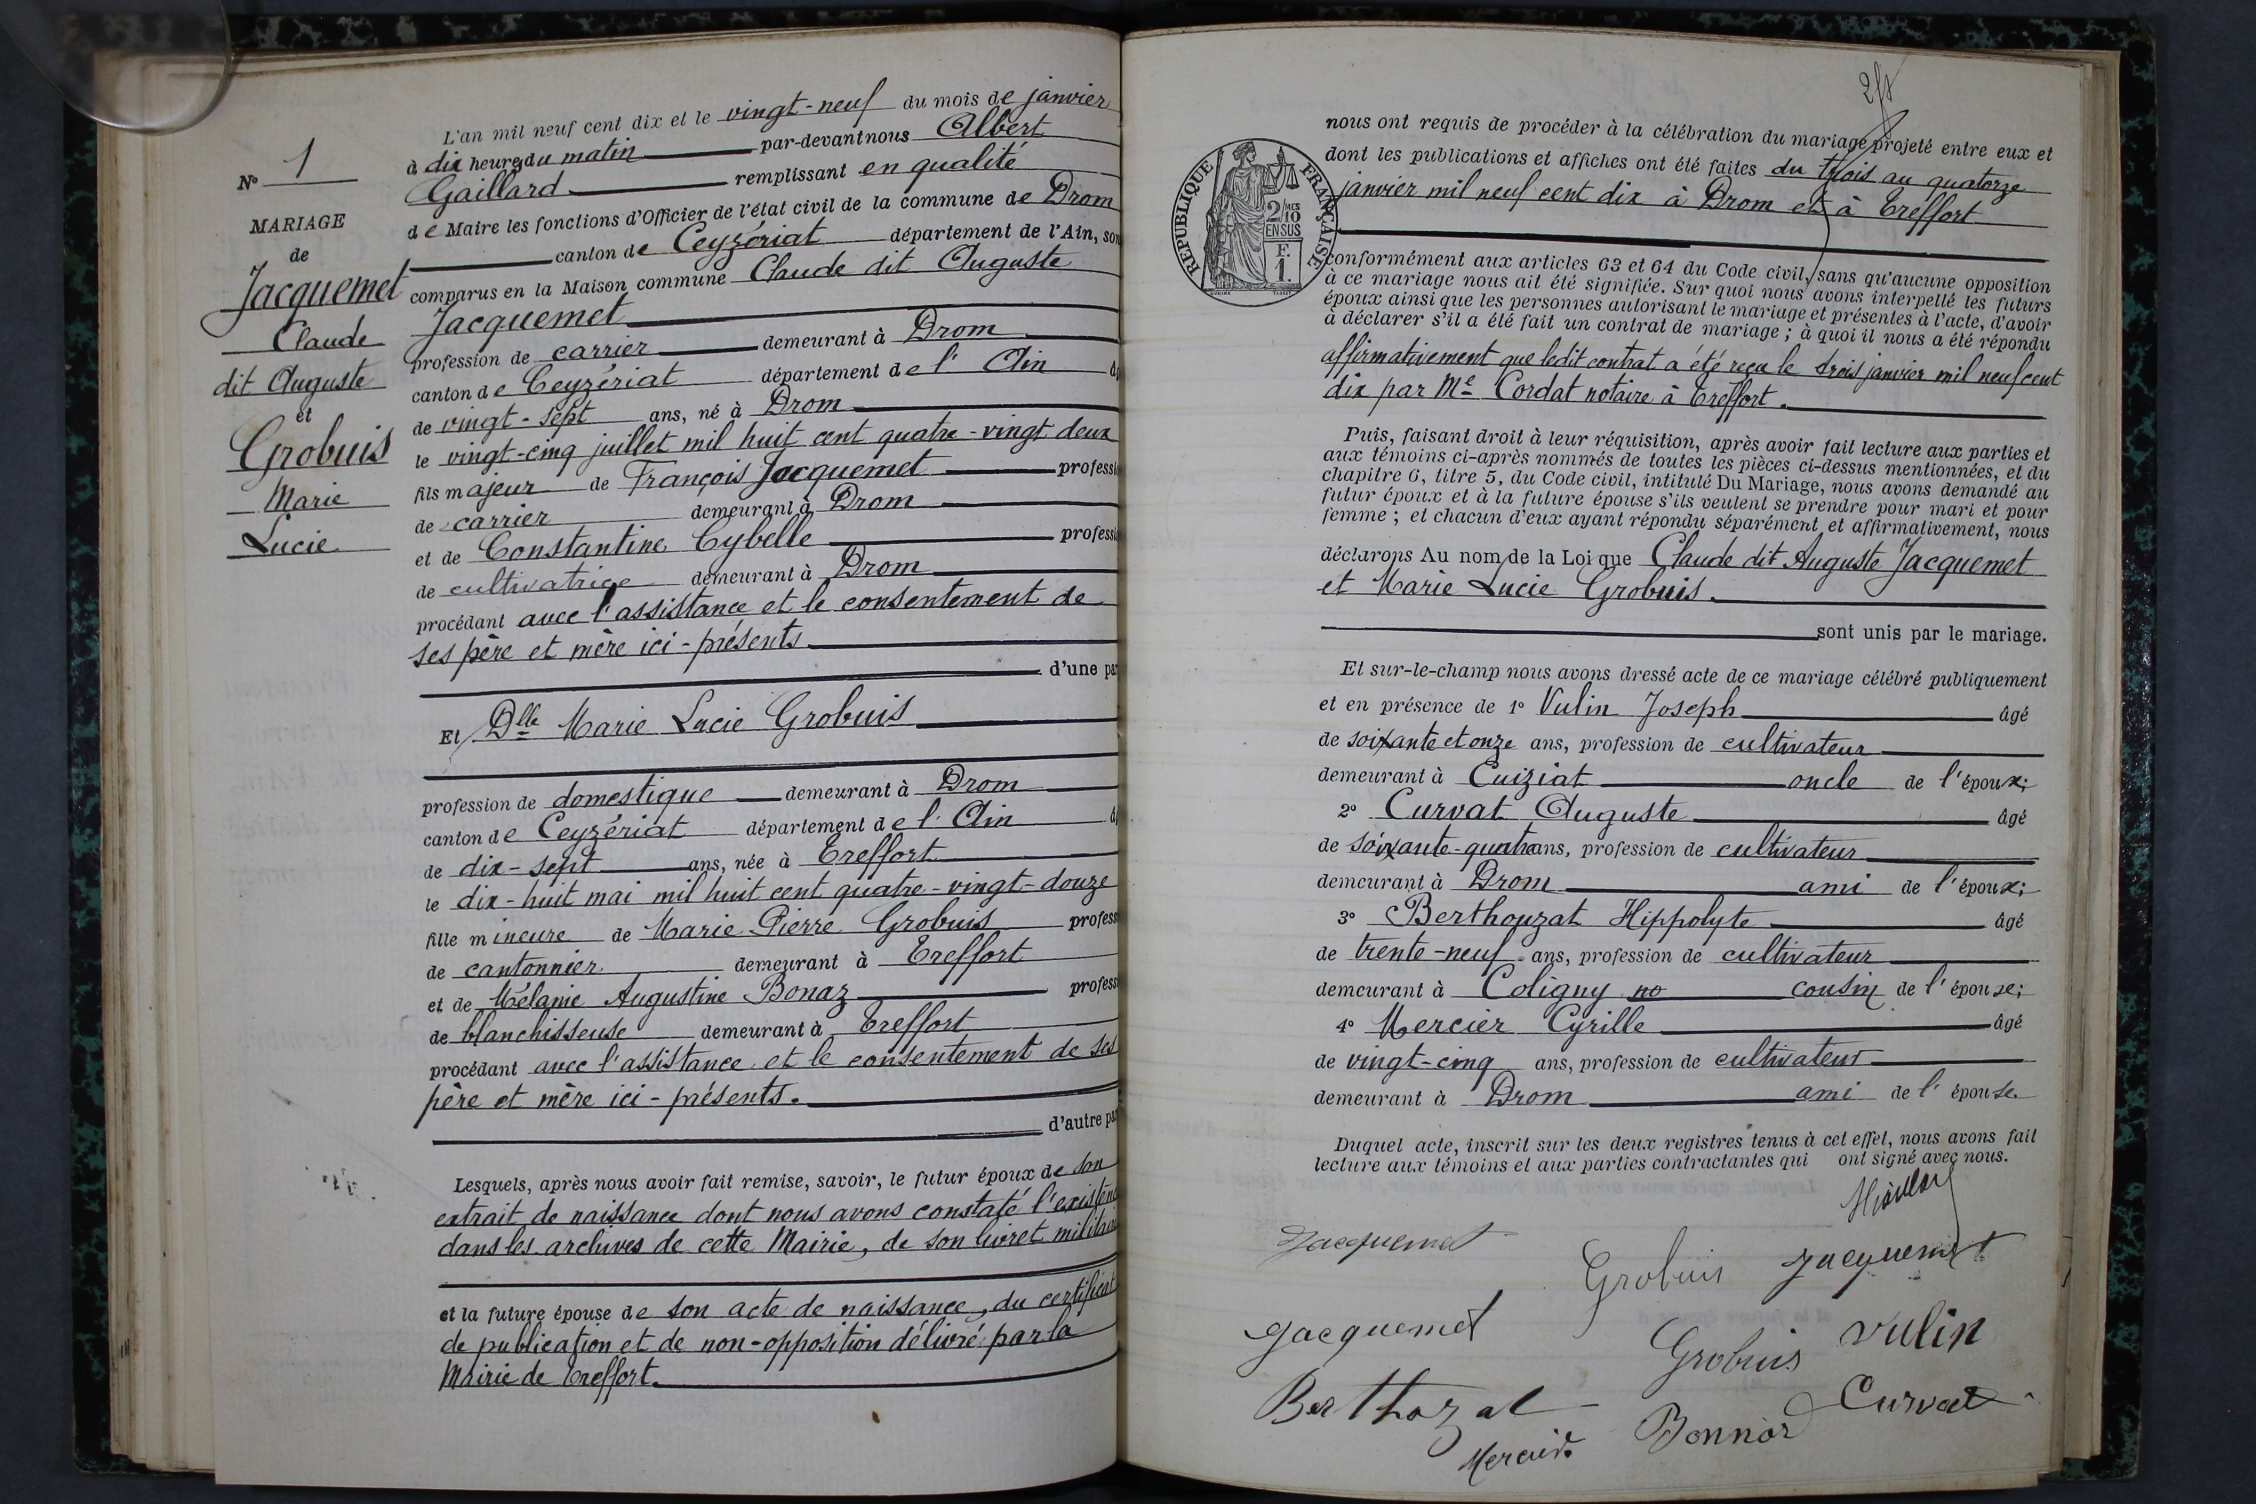 N° 1
MARIAGE
de
Jacquemet
Claude
dit Auguste
et
Grobuis
Marie
Lucie
L'an mil neuf cent dix et le vingt-neuf du mois de janvier
à dix heures du matin par-devant nous Albert
Gaillard remplissant en qualité
de Maire les fonctions d'Officier de l'état civil de la commune de Drom
canton de Ceyzériat département de l'Ain, son
comparus en la Maison commune Claude dit Auguste
Jacquemet
profession de carrier demeurant à Drom
canton de Ceyzériat département de l'Ain
de vingt-sept ans, né à Drom
le vingt-cinq juillet mil huit cent quatre-vingt deux
fils majeur de François Jacquemet professi
de carrier demeurant à Drom
et de Constantine Cybelle professi
de cultivatrice demeurant à Drom
procédant avec l'assistance et le consentement de
ses père et mère ici-présents
d'une par
Et Dlle Marie Lucie Grobuis
profession de domestique demeurant à Drom
canton de Ceyzériat département de l'Ain
de dix-sept ans, née à Treffort
le dix-huit mai mil huit cent quatre-vingt-douze
fille mineure de Marie Pierre Grobuis profess
de cantonnier demeurant à Treffort
et de Mélanie Augustine Bonaz profess
de blanchisseuse demeurant à Treffort
procédant avec l'assistance et le consentement de ses
père et mère ici-présents.
d'autre pa
Lesquels, après nous avoir fait remise, savoir, le futur époux de son
extrait de naissance dont nous avons constaté l'existenc
dans les archives de cette Mairie, de son livret militai
et la future épouse de son acte de naissance, du certificat
de publication et de non-opposition délivré par la
Mairie de Treffort.
2f
RÉPUBLIQUE FRANÇAISE
2/10 MES
EN SUS
F.
1.
nous ont requis de procéder à la célébration du mariage projeté entre eux et
dont les publications et affiches ont été faites du trois au quatorze
janvier mil neuf cent dix à Drom et à Treffort
conformément aux articles 63 et 64 du Code civil, sans qu'aucune opposition
à ce mariage nous ait été signifiée. Sur quoi nous avons interpellé les futurs
époux ainsi que les personnes autorisant le mariage et présentes à l'acte, d'avoir
à déclarer s'il a été fait un contrat de mariage ; à quoi il nous a été répondu
affirmativement que ledit contrat a été reçu le trois janvier mil neuf cent
dix par Me Cordat notaire à Treffort.
Puis, faisant droit à leur réquisition, après avoir fait lecture aux parties et
aux témoins ci-après nommés de toutes les pièces ci-dessus mentionnées, et du
chapitre 6, titre 5, du Code civil, intitulé Du Mariage, nous avons demandé au
futur époux et à la future épouse s'ils veulent se prendre pour mari et pour
femme ; et chacun d'eux ayant répondu séparément et affirmativement, nous
déclarons Au nom de la Loi que Claude dit Auguste Jacquemet
et Marie Lucie Grobuis.
sont unis par le mariage.
Et sur-le-champ nous avons dressé acte de ce mariage célébré publiquement
et en présence de 1° Vulin Joseph âgé
de soixante et onze ans, profession de cultivateur
demeurant à Cuiziat oncle de l'époux;
2° Curvat Auguste âgé
de soixante-quatre ans, profession de cultivateur
demeurant à Drom ami de l'époux;
3° Berthouzat Hippolyte âgé
de trente-neuf ans, profession de cultivateur
demeurant à Coligny no cousin de l'épouse;
4° Mercier Cyrille âgé
de vingt-cinq ans, profession de cultivateur
demeurant à Drom ami de l'épouse.
Duquel acte, inscrit sur les deux registres tenus à cet effet, nous avons fait
lecture aux témoins et aux parties contractantes qui ont signé avec nous.
Jacquemet
Grobuis
Jacquemet
Jacquemet
Grobuis
Vulin
Berthozat
Bonnaz
Curvat
Mercier